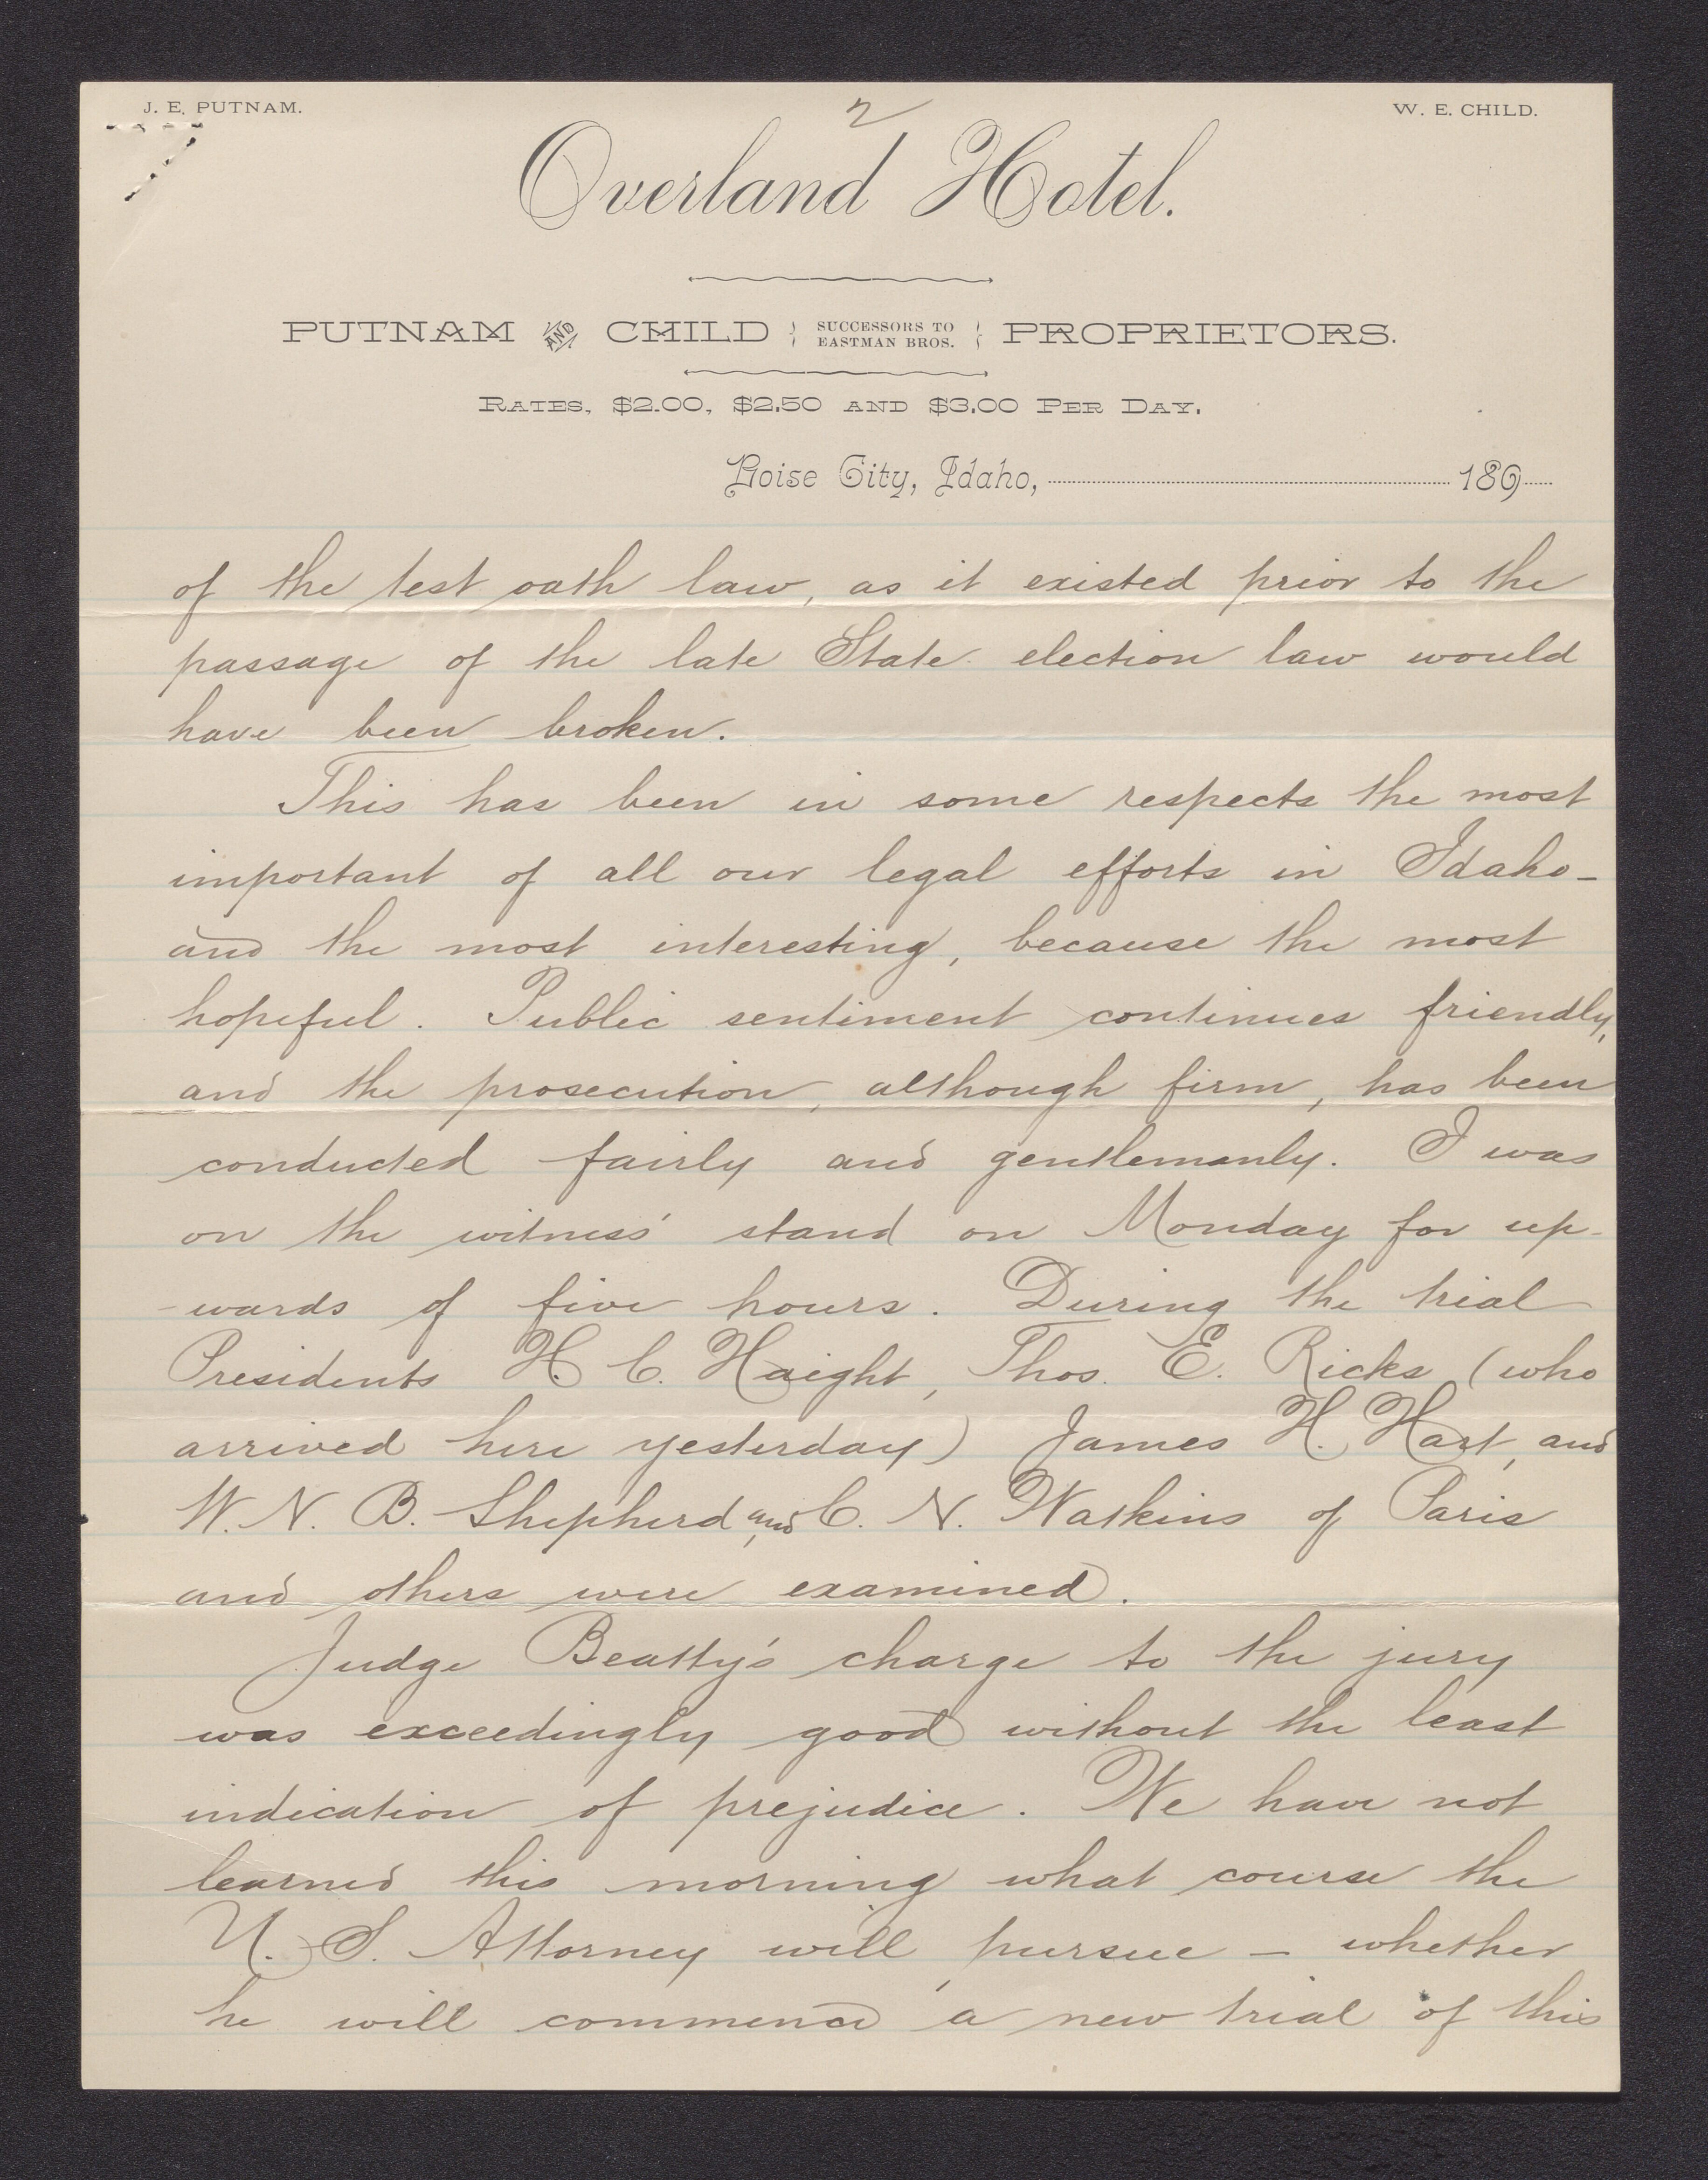 J. E. PUTNAM.
2
W. E. CHILD.
Overland Hotel.
PUTNAM AND CHILD } SUCCESSORS TO EASTMAN BROS. { PROPRIETORS.
RATES, $2.00, $2.50 AND $3.00 PER DAY.
Boise City, Idaho, 189
of the test oath law, as it existed prior to the
passage of the late State election law would
have been broken.
This has been in some respects the most
important of all our legal efforts in Idaho-
and the most interesting, because the most
hopeful. Public sentiment continues friendly,
and the prosecution, although firm, has been
conducted fairly and gentlemanly. I was
on the witness stand on Monday for up-
-wards of five hours. During the trial
Presidents H. C. Haight, Thos. E. Ricks (who
arrived here yesterday) James H. Hart, and
W. N. B. Shepherd, and C. N. Watkins of Paris
and others were examined.
Judge Beatty's charge to the jury
was exceedingly good without the least
indication of prejudice. We have not
learned this morning what course the
U. S. Attorney will pursue - whether
he will commence a new trial of this